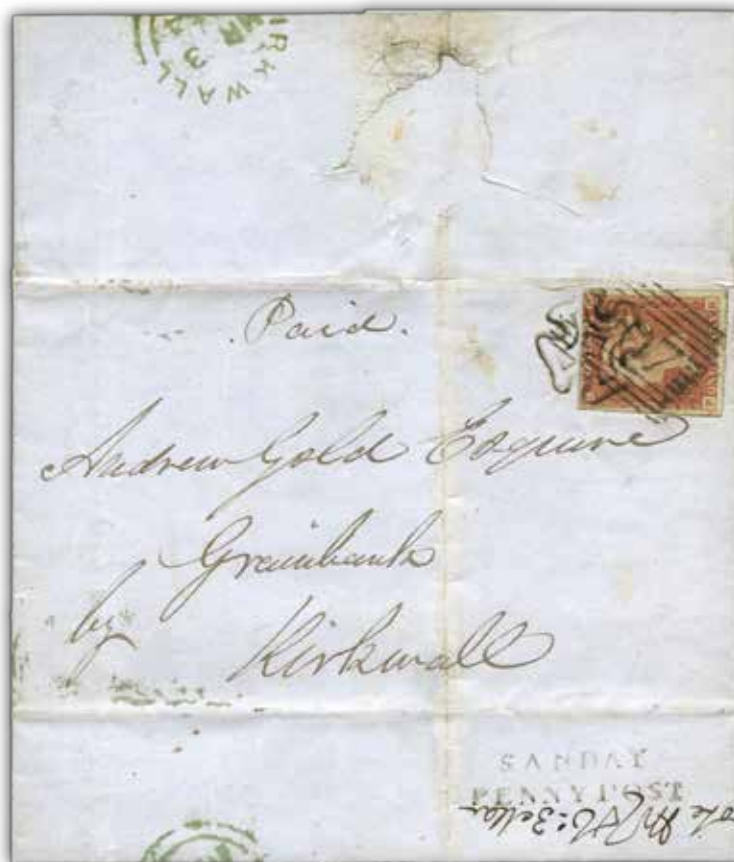 KIRKWALL
3
Paid.
Andrew Gold Esquire
Grainbank
by
Kirkwall
SANDAY
PENNY POST